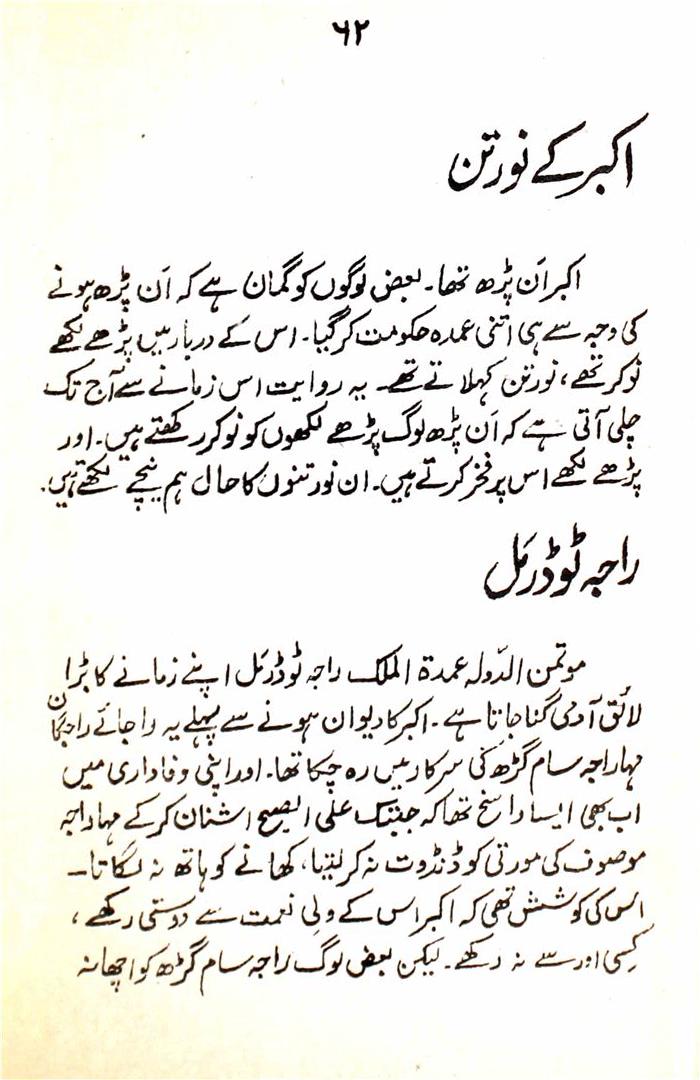 ۶۲
اکبر کے نورتن
اکبر اَن پڑھ تھا۔ بعض لوگوں کو گمان ہے کہ اَن پڑھ ہونے
کی وجہ سے ہی اتنی عمدہ حکومت کر گیا۔ اس کے دربار میں پڑھے لکھے
نوکر تھے، نورتن کہلاتے تھے۔ یہ روایت اس زمانے سے آج تک
چلی آتی ہے کہ اَن پڑھ لوگ پڑھے لکھوں کو نوکر رکھتے ہیں۔ اور
پڑھے لکھے اس پر فخر کرتے ہیں۔ ان نورتنوں کا حال ہم نیچے لکھتے ہیں۔
راجہ ٹوڈرمَل
موتمن الدّولہ عمدۃ الملک راجہ ٹوڈرمَل اپنے زمانے کا بڑا
لائق آدمی گنا جاتا ہے۔ اکبر کا دیوان ہونے سے پہلے یہ راجائے راجگان
مہاراجہ سام گڑھ کی سرکار میں رہ چکا تھا۔ اور اپنی وفاداری میں
اب بھی ایسا راسخ تھا کہ جب تک علی الصبح اشنان کر کے مہاراجہ
موصوف کی مورتی کو ڈنڈوت نہ کر لیتا، کھانے کو ہاتھ نہ لگاتا۔
اس کی کوشش تھی کہ اکبر اس کے ولیِ نعمت سے دوستی رکھے،
کِسی اور سے نہ رکھے۔ لیکن بعض لوگ راجہ سام گڑھ کو اچھا نہ